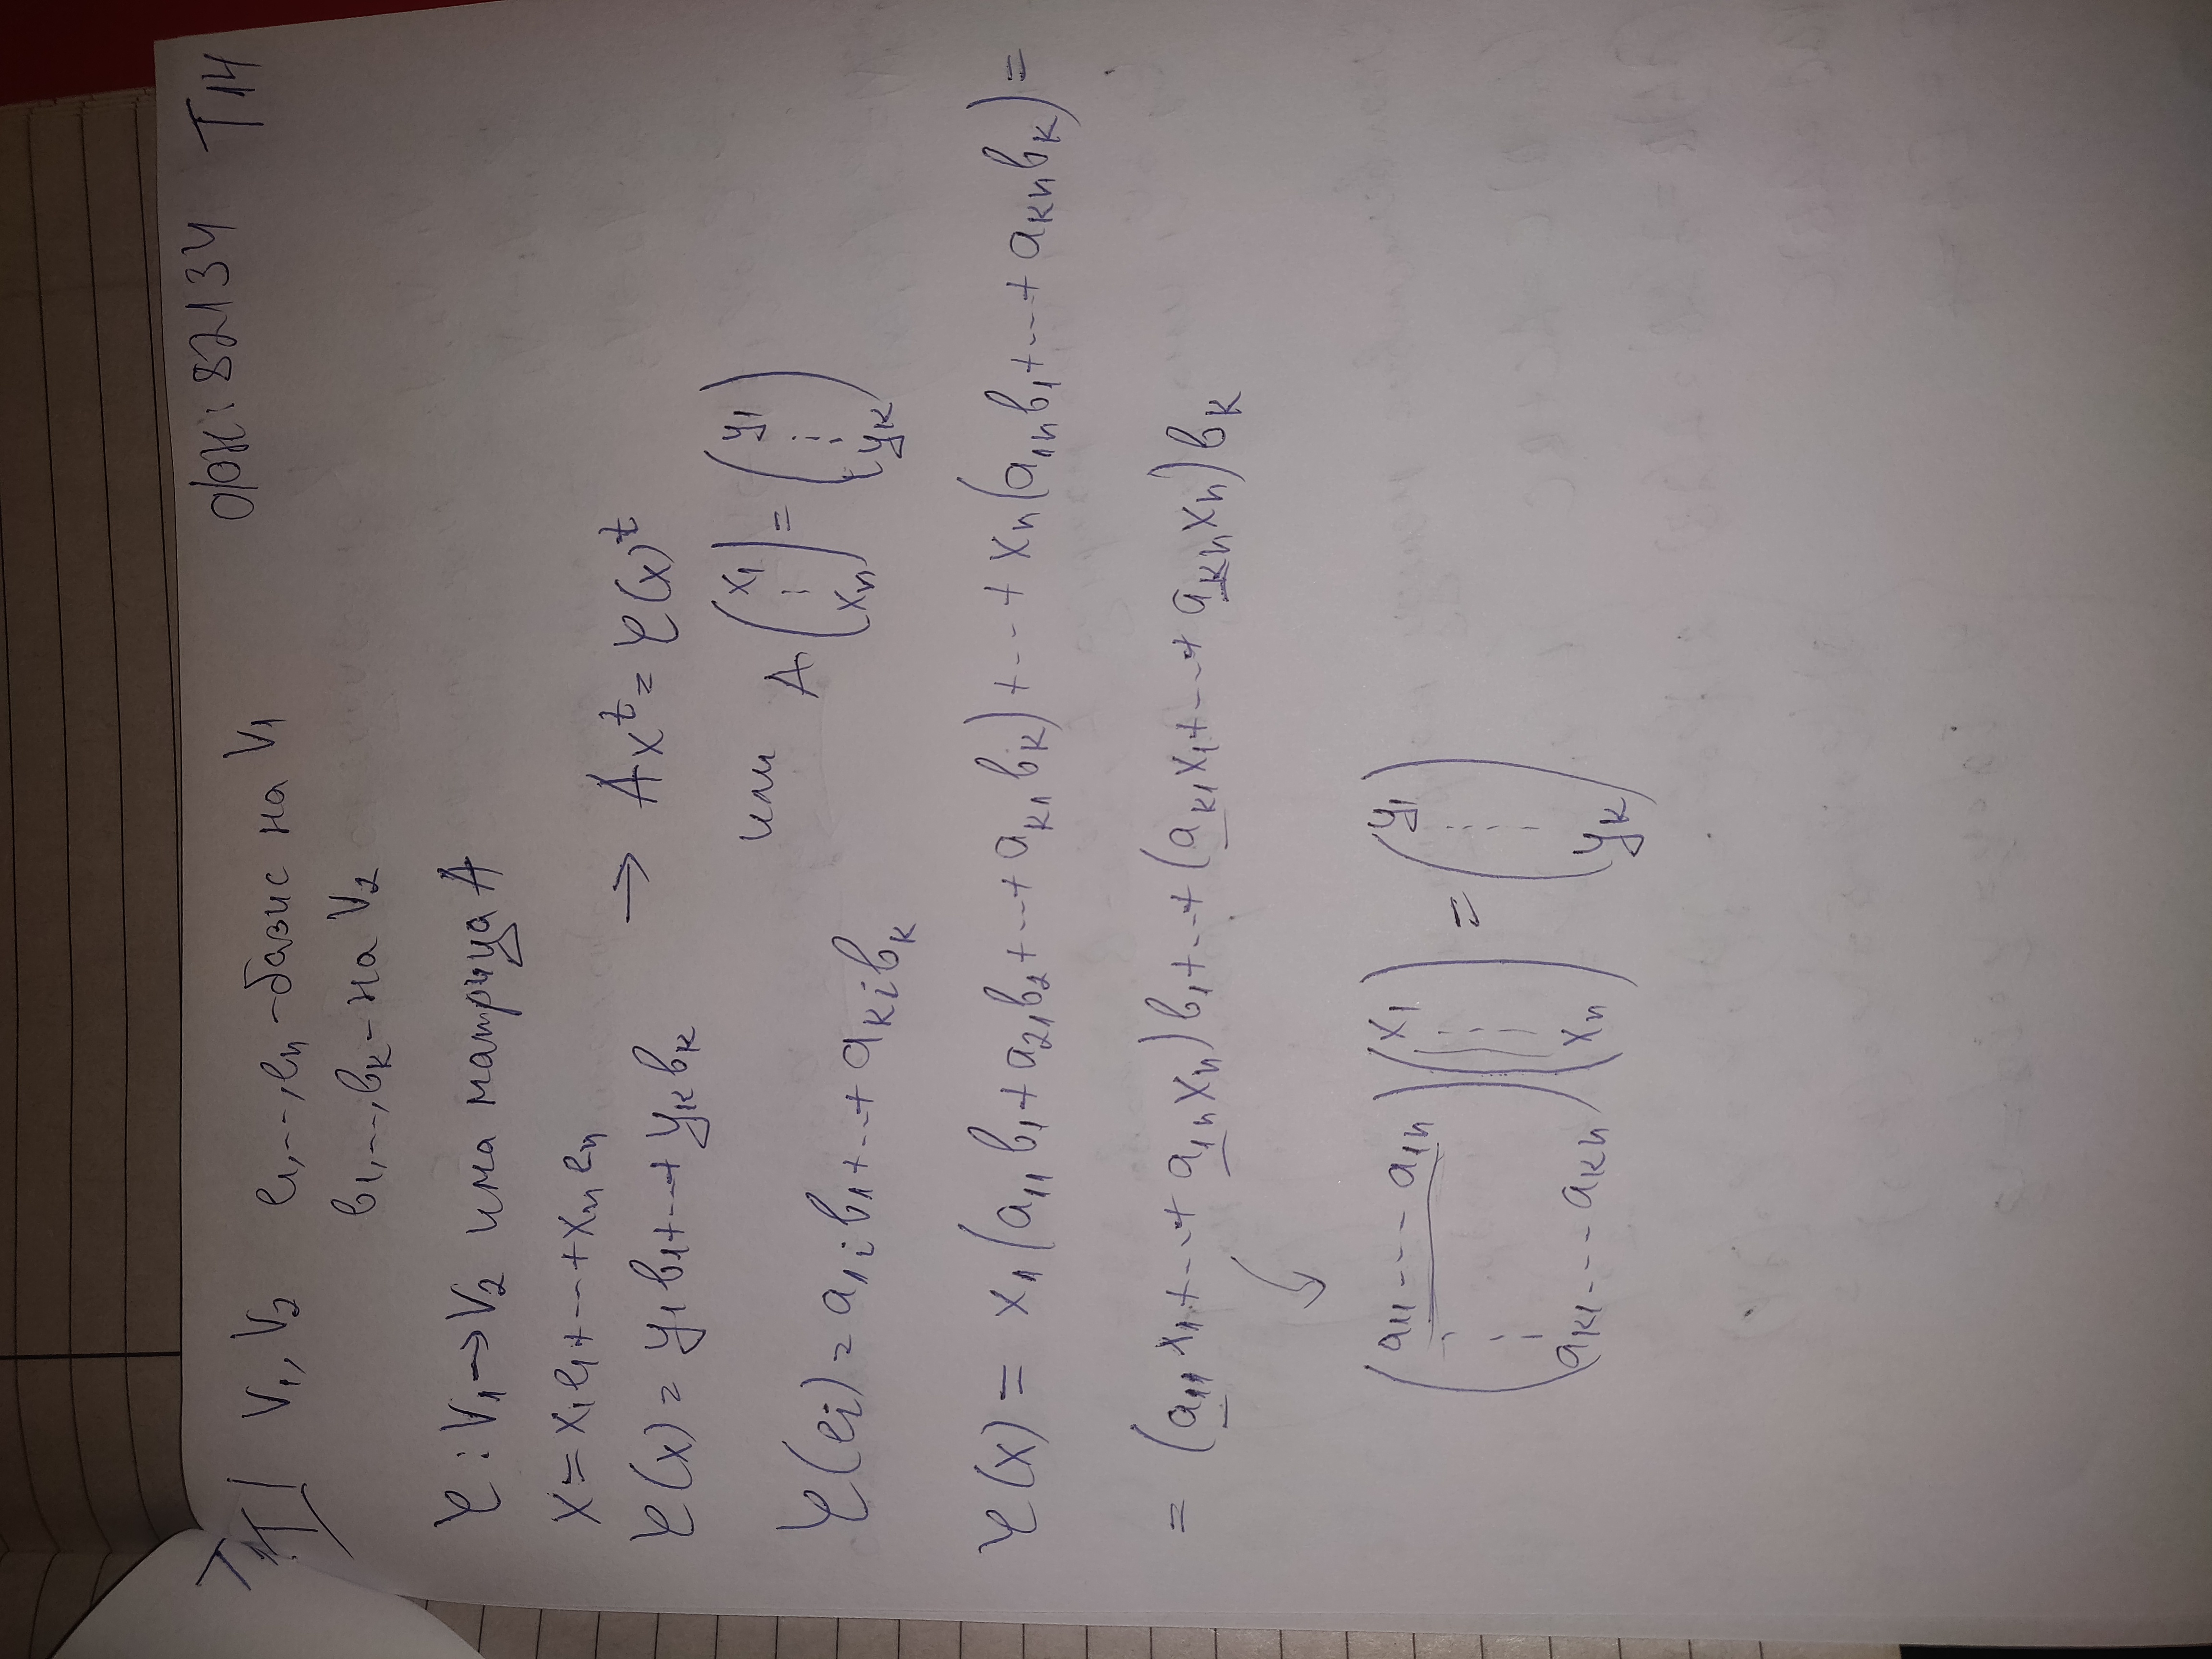 ф/н: 82134 T14
T/ V₁, V₂ e₁,...,eₙ - базис на V₁
b₁,...,bₖ - на V₂
φ : V₁ → V₂ има матрица A
x = x₁e₁ + ... + xₙeₙ
φ(x) = y₁b₁ + ... + yₖbₖ → Axᵗ = φ(x)ᵗ
или A (x₁ ⋮ xₙ) = (y₁ ⋮ yₖ)
φ(eᵢ) = a₁ᵢb₁ + ... + aₖᵢbₖ
φ(x) = x₁(a₁₁b₁ + a₂₁b₂ + ... + aₖ₁bₖ) + ... + xₙ(a₁ₙb₁ + ... + aₖₙbₖ) =
= (a₁₁x₁ + ... + a₁ₙxₙ)b₁ + ... + (aₖ₁x₁ + ... + aₖₙxₙ)bₖ
(a₁₁ ... a₁ₙ ⋮ aₖ₁ ... aₖₙ) (x₁ ⋮ xₙ) = (y₁ ⋮ yₖ)